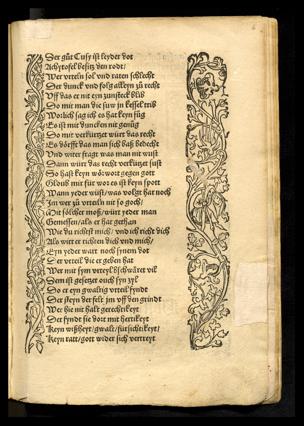 Der gůt Cusy ist leyder dot
Achytofel besitz den rodt/
Wer vrteln sol vnd raten schlecht
Der dunck vnd folg alleyn zů recht
Vff das er nit eyn zunsteck blib
So mit man die suw jn kessel trib
Worlich sag ich es hat keyn fůg
Es ist mit duncken nit genůg
So mit verkürtzet würt das recht
Es dörfft das man sich baß bedecht
Vnd witer fragt was man nit wust
Dann würt das recht verkürtzet sust
So hast keyn wörwort gegen gott
Gloub mir für wor es ist keyn spott
Wann yeder wüst/ was volgt har noch
Im wer zů vrteiln nit so goch/
Mit sölcher moß/ würt yeder man
Gemessen/ als er hat gethan
Wie du richtest mich/ vnd ich richt dich
Als wirt er richten dich vnd mich/
Eyn yeder wart noch synem dot
Der vrteil die er geben hat
Wer mit sym vrteyl bschwärt vil
Dem ist gesetzet ouch syn zyl
Do er eyn gwaltig vrteil fyndt
Der steyn der felt jm vff den grindt
Wer hie nit halt gerechtikeyt/
Der fyndt sie dort mit hertikeyt
Keyn wißheyt/ gwalt/ fürsichtikeyt/
Keyn ratt/ gott wider sich vertreyt